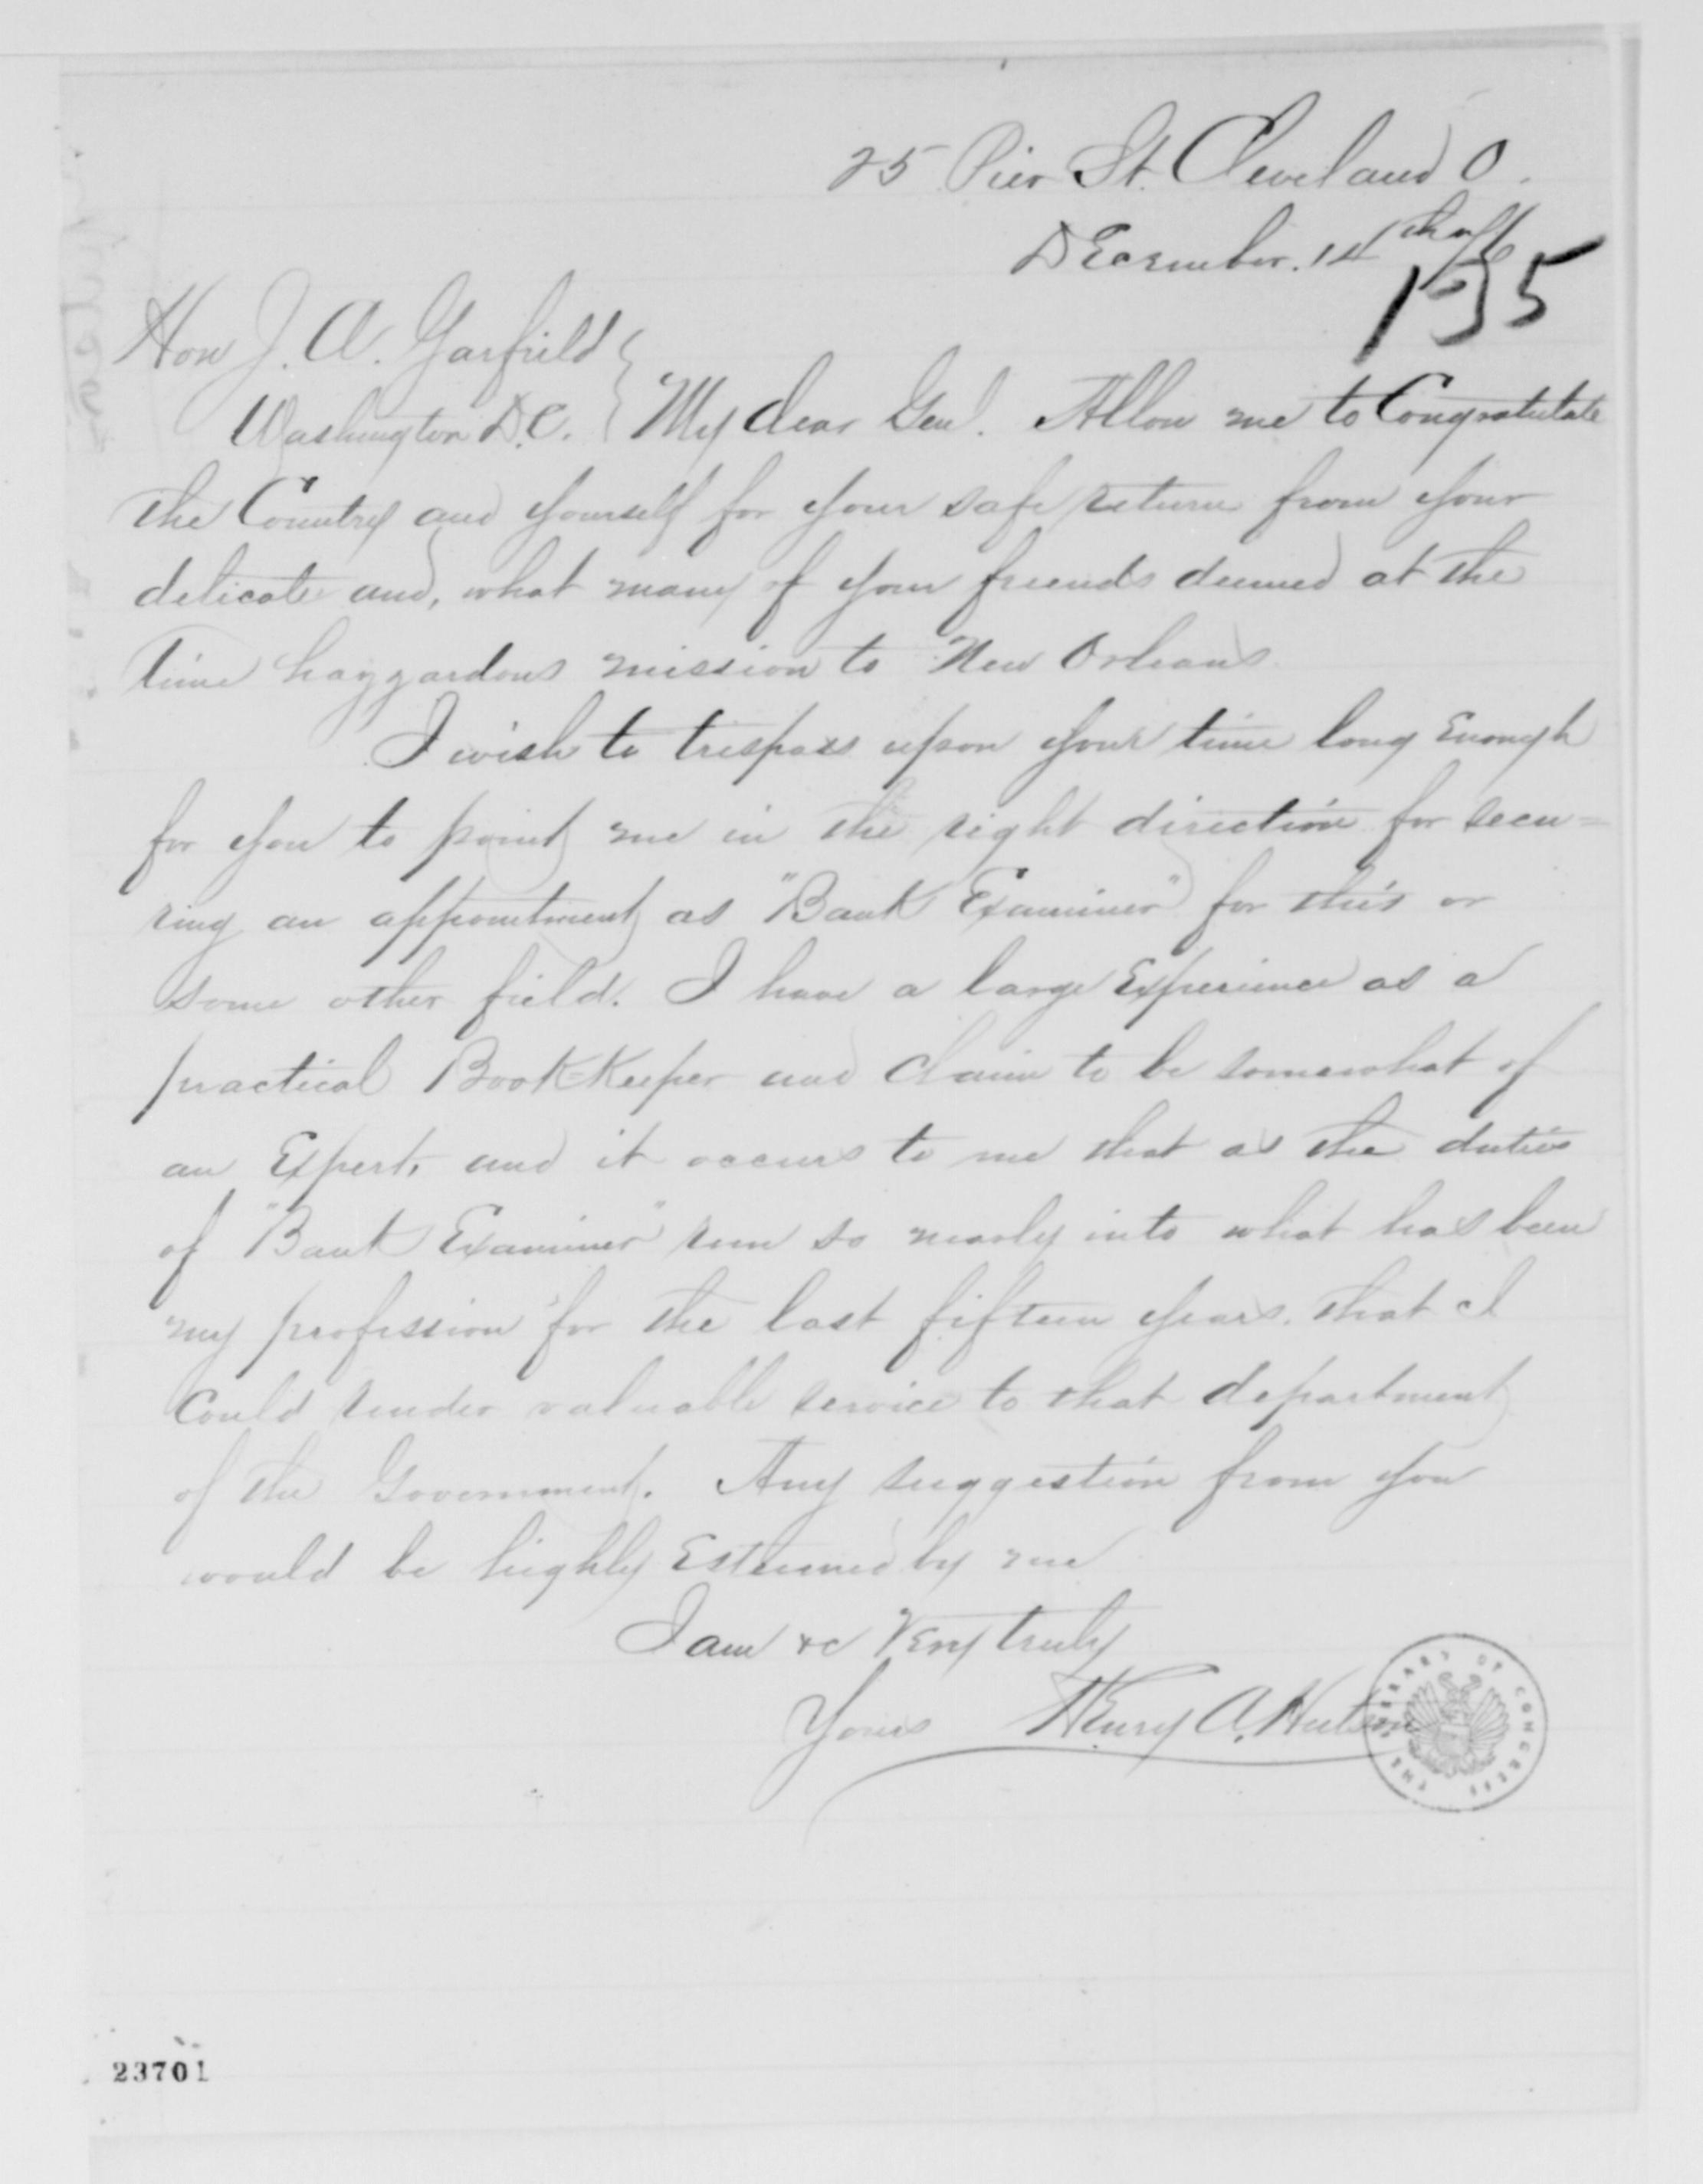 25 Pier St. Cleveland O.
December. 14th /76
135
Hon J. A. Garfield
Washington D.C. } My dear Genl. Allow me to Congratulate
the Country and yourself for your safe return from your
delicate and, what many of your friends deemed at the
time hazzardous mission to New Orleans.
I wish to trespass upon your time long Enough
for you to point me in the right direction for secu=
ring an appointment as "Bank Examiner" for this or
some other field. I have a large Experience as a
practical Book=Keeper and Claim to be somewhat of
an Expert, and it occurs to me that as the duties
of "Bank Examiner" run so nearly into what has been
my profession for the last fifteen years. that I
Could render valuable service to that department
of the Government. Any suggestion from you
would be highly Esteemed by me
I am &c Very truly
Yours Henry A. Hutson
THE LIBRARY OF CONGRESS
23701